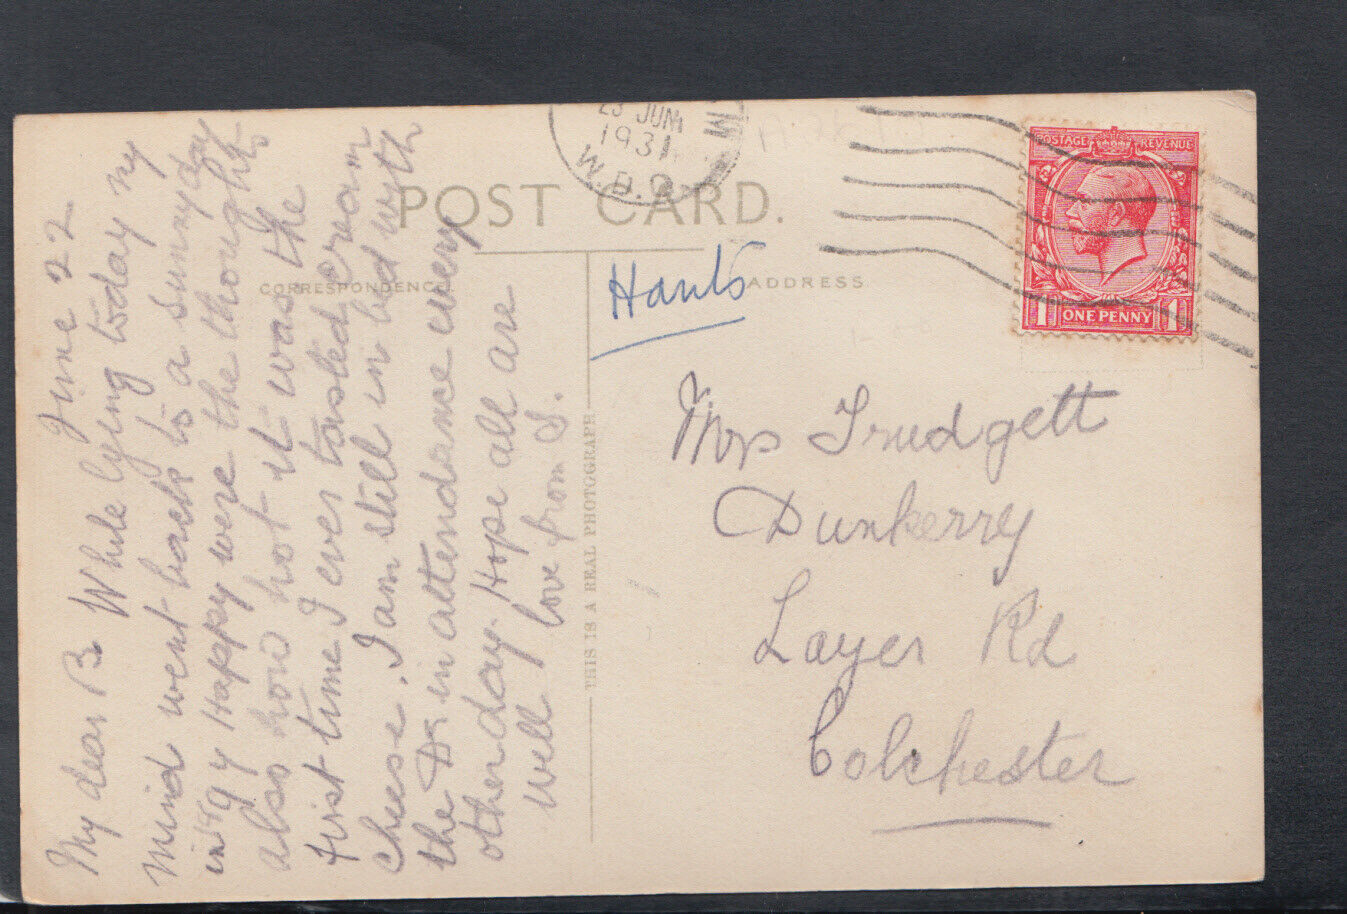 June 22
My dear B. While lying today my
mind went back to a sunny day
in 1914 Happy were the thoughts
also how hot it was the
first time I ever tasted cream
cheese. I am still in bed with
the Dr in attendance every
other day. Hope all are
well love from S.
POST CARD.
CORRESPONDENCE
ADDRESS
THIS IS A REAL PHOTOGRAPH
23 JUN
1931
W.D.O.
POSTAGE REVENUE
1 ONE PENNY 1
Hants
Mrs Trudgett
Dunkerry
Layer Rd
Colchester